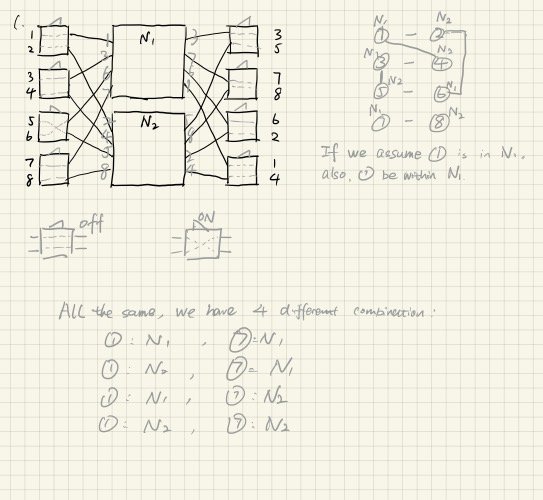 (.
1 2
3 4
5 6
7 8
N1
N2
1 3 6 7
2 4 5 8
3 5
7 8
6 2
1 4
N1 N2
① - ②
N N2
③ - ④
N2 N1
⑤ ⑥
N1 N2
⑦ - ⑧
If we assume ① is in N1.
also, ⑦ be within N1.
off
ON
All the same, we have 4 different combinection :
① : N1 , ⑦ = N1
① : N2 , ⑦ = N1
① : N1 , ⑦ : N2
① : N2 , ⑦ : N2